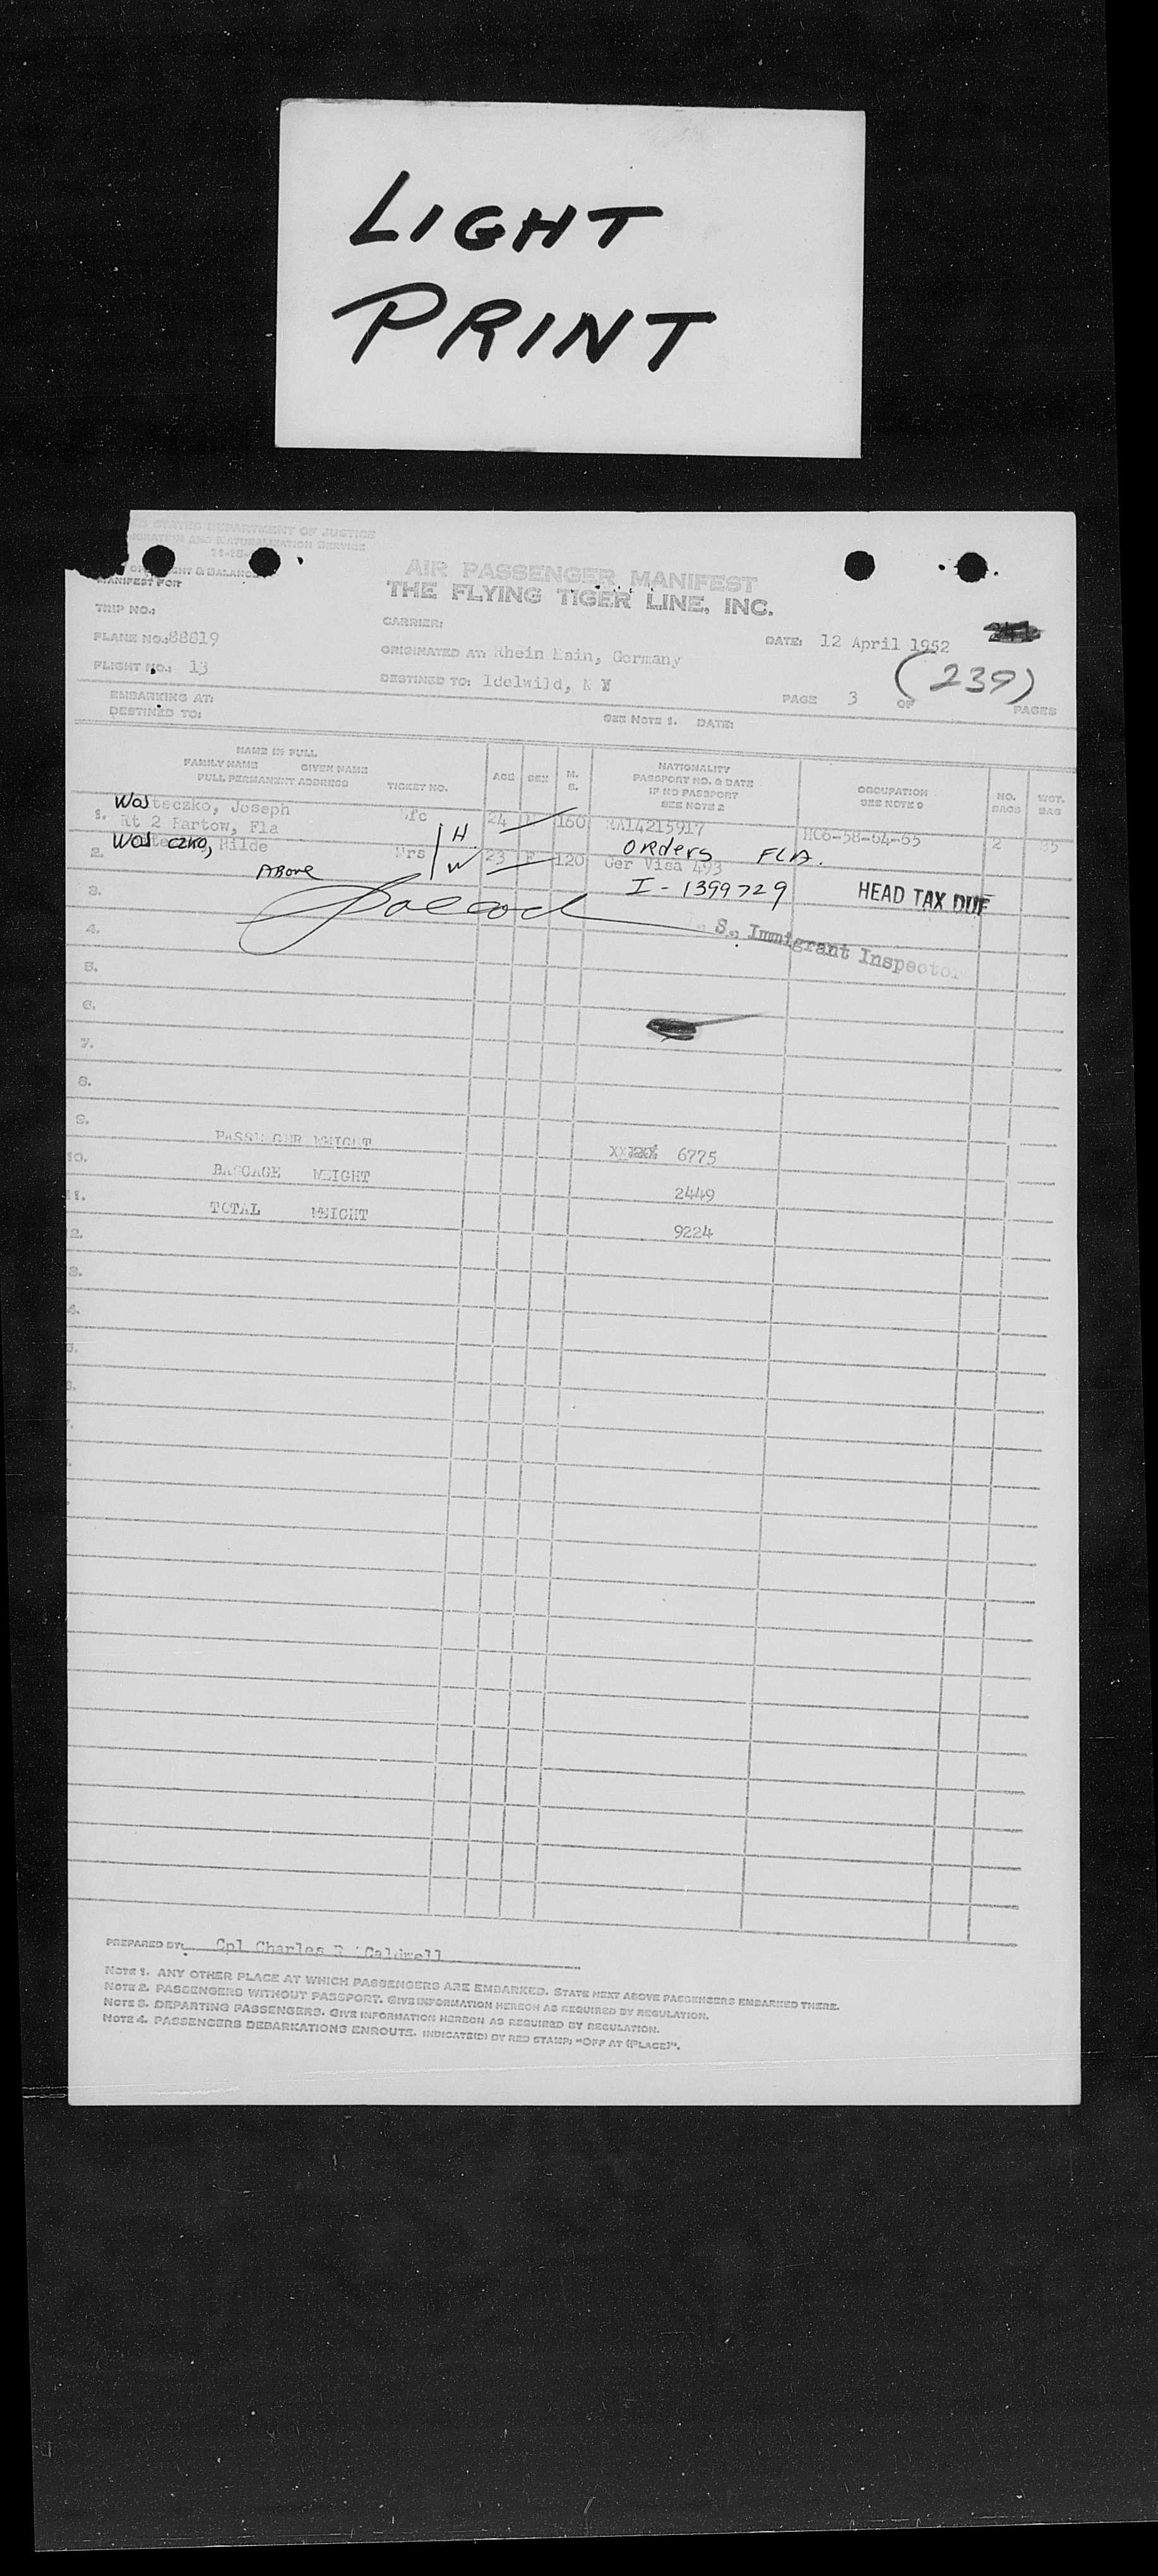 LIGHT
PRINT
STATES DEPARTMENT OF JUSTICE
IMMIGRATION AND NATURALIZATION SERVICE
& BALANCE
MANIFEST FOR
AIR PASSENGER MANIFEST
THE FLYING TIGER LINE, INC.
TRIP NO.:
CARRIER:
PLANE NO.: 88819
ORIGINATED AT: Rhein Main, Germany
DATE: 12 April 1952
FLIGHT NO.: 13
DESTINED TO: Idelwild, N Y
(239)
PAGE 3 OF PAGES
EMBARKING AT:
DESTINED TO:
SEE NOTE 1. DATE:
NAME IN FULL
FAMILY NAME GIVEN NAME
FULL PERMANENT ADDRESS
TICKET NO.
AGE
SEX
M.
S.
NATIONALITY
PASSPORT NO. & DATE
IF NO PASSPORT
SEE NOTE 2
OCCUPATION
SEE NOTE 3
NO.
BAGS
WGT.
BAG
1. Wosteczko, Joseph 24 160 RA14215917 2 35
Rt 2 Bartow, Fla
H. Orders FLA.
2. Hilde Mrs W 23 F 120 Ger Visa 493
Above I-1399729 HEAD TAX DUE
3.
4.
S., Immigrant Inspector
5.
6.
7.
8.
9.
PASSENGER WEIGHT 6775
10.
BAGGAGE WEIGHT 2449
11.
TOTAL WEIGHT 9224
2.
3.
4.
PREPARED BY: Cpl Charles R Caldwell
NOTE 1. ANY OTHER PLACE AT WHICH PASSENGERS ARE EMBARKED. STATE NEXT ABOVE PASSENGERS EMBARKED THERE.
NOTE 2. PASSENGERS WITHOUT PASSPORT. GIVE INFORMATION HEREON AS REQUIRED BY REGULATION.
NOTE 3. DEPARTING PASSENGERS. GIVE INFORMATION HEREON AS REQUIRED BY REGULATION.
NOTE 4. PASSENGERS DEBARKATIONS ENROUTE. INDICATE(D) BY RED STAMP: "OFF AT (PLACE)".